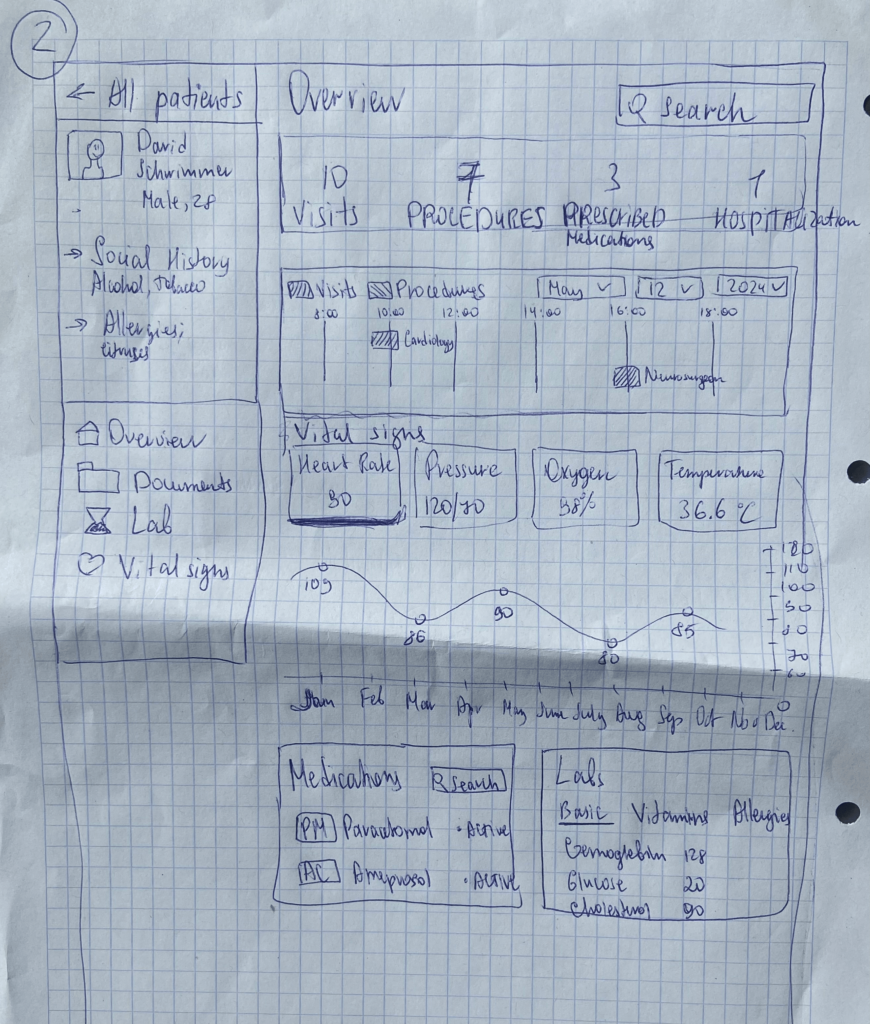 2
← All patients
David
Schwimmer
Male, 28
→ Social History
Alcohol, tobacco
→ Allergies;
citruses
Overview
Documents
Lab
Vital signs
Overview
Search
10 7 3 1
Visits PROCEDURES PRESCRIBED HOSPITALization
Medications
Visits Procedures May 12 2024
8:00 10:00 12:00 14:00 16:00 18:00
Cardiology
Neurosurgeon
Vital signs
Heart Rate Pressure Oxygen Temperature
90 120/70 98% 36.6 °C
109 86 90 80 85
120
110
100
90
80
70
60
0
Jan Feb Mar Apr May June July Aug Sep Oct Nov Dec.
Medications Search
PM Paracetomol • Active
AC • ACTIVE
Labs
Basic Vitamins Allergies
Gemoglebin 128
Glucose 20
Cholesterol 90